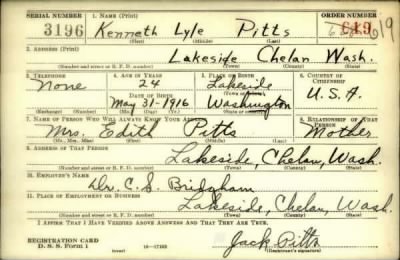 SERIAL NUMBER 1. NAME (Print) ORDER NUMBER
3196 Kenneth Lyle Pitts 619
(First) (Middle) (Last)
2. ADDRESS (Print)
Lakeside Chelan Wash.
(Number and street or R. F. D. number) (Town) (County) (State)
3. TELEPHONE 4. AGE IN YEARS 5. PLACE OF BIRTH 6. COUNTRY OF CITIZENSHIP
None 24 Lakeside
DATE OF BIRTH (Town or county)
May 31-1916 Washington U.S.A.
(Exchange) (Number) (Mo.) (Day) (Yr.) (State or country)
7. NAME OF PERSON WHO WILL ALWAYS KNOW YOUR ADDRESS 8. RELATIONSHIP OF THAT PERSON
Mrs. Edith Pitts Mother
(Mr., Mrs., Miss) (First) (Middle) (Last)
9. ADDRESS OF THAT PERSON
Lakeside, Chelan, Wash.
(Number and street or R. F. D. number) (Town) (County) (State)
10. EMPLOYER'S NAME
Dr. C. S. Bridgham
11. PLACE OF EMPLOYMENT OR BUSINESS
Lakeside, Chelan, Wash.
(Number and street or R. F. D. number) (Town) (County) (State)
I AFFIRM THAT I HAVE VERIFIED ABOVE ANSWERS AND THAT THEY ARE TRUE.
REGISTRATION CARD
D. S. S. Form 1 16-17105 Jack Pitts
(Registrant's signature)